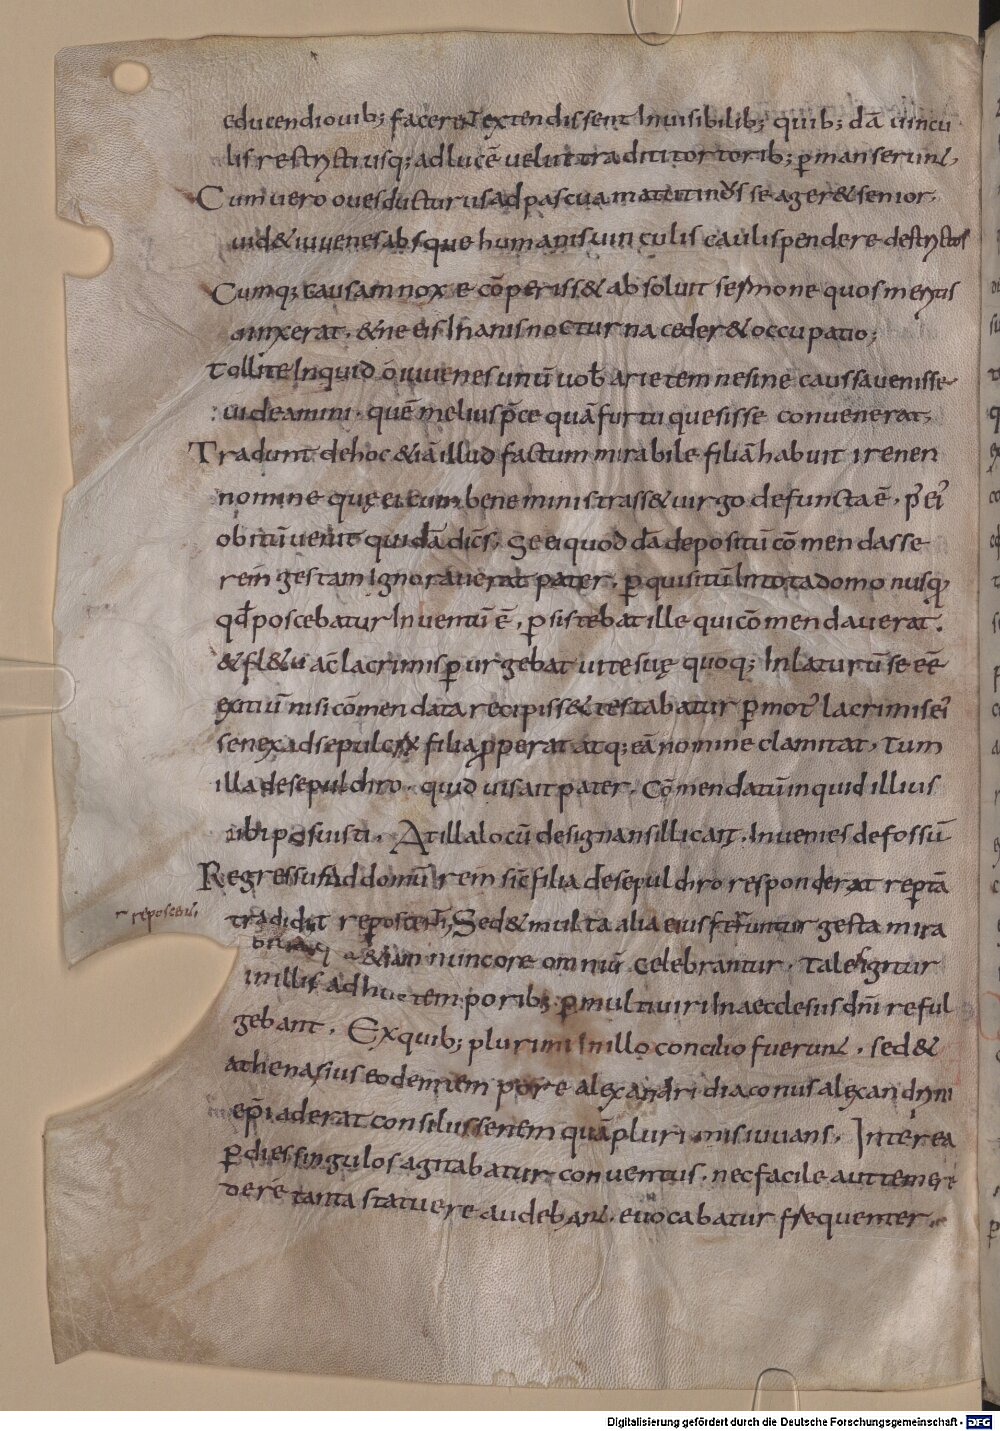 educendi ouib; facerent extendissent Inuisibilib; quib; dā uincu
lis restricti usq; ad lucē uelut traditi tortorib; ꝑmanserunt,
Cum uero oues ducturus ad pascua matutinus se ager& senior,
uid& iuuenes absque humanis uinculis caulis pendere destrictos
Cumq; causam noxe cōperiss& absoluit sermone quos meritis
uinxerat. & ne eis Inanis nocturna ceder& occupatio;
Tollite Inquid ó iuuenes unū uob arietem ne sine caussa uenisse
uideamini. quē melius p̄ce quā furtu quesisse conuenerat,
Tradunt de hoc &iā illud factum mirabile filiā habuit irenen
nomine quę ei cum bene ministrass& uirgo defuncta ē. p' ei'
obitū uenit quidā dic̄s. Se ei quod dā depositū cōmendasse
rem gestam Ignorauerat pater. ꝑquisitū In tota domo nusq̄
qd̄ poscebatur Inuentū ē. ꝑsistebat ille qui cōmendauerat.
& fl&u ac lacrimis ꝑurgebat uite suę quoq; Inlaturū se eē
exitiū nisi cōmendata recipiss& testabatur ꝑmot' lacrimis ei'
senex ad sepulcrū filia ꝓperat atq; eā nomine clamitat. Tum
illa de sepulchro. quid uis ait pater. Cōmendatū inquid illius
ubi posuisti. At illa locū designans illic ait. Inuenies defossū
Regressus ad domū rem sic filia de sepulchro responderat reptā
r reposcenti,
tradidit reposcenti, Sed & multa alia eius feruntur gesta mira
&iam nunc ore omniū celebrantur. Tales igitur
in illis adhuc temporib; ꝑmulti uiri In aecclesiis dn̄i reful
gebant. Ex quib; plurimi In illo concilio fuerunt. sed &
athenasius eodem tempore alexandri diaconus alexandrini
ep̄i aderat consiliis senem quā plurimis iuuans. Interea
ꝑ dies singulos agitabatur conuentus. nec facile aut temere
de re tanta statuere audebant. euocabatur frequenter.
Digitalisierung gefördert durch die Deutsche Forschungsgemeinschaft - DFG